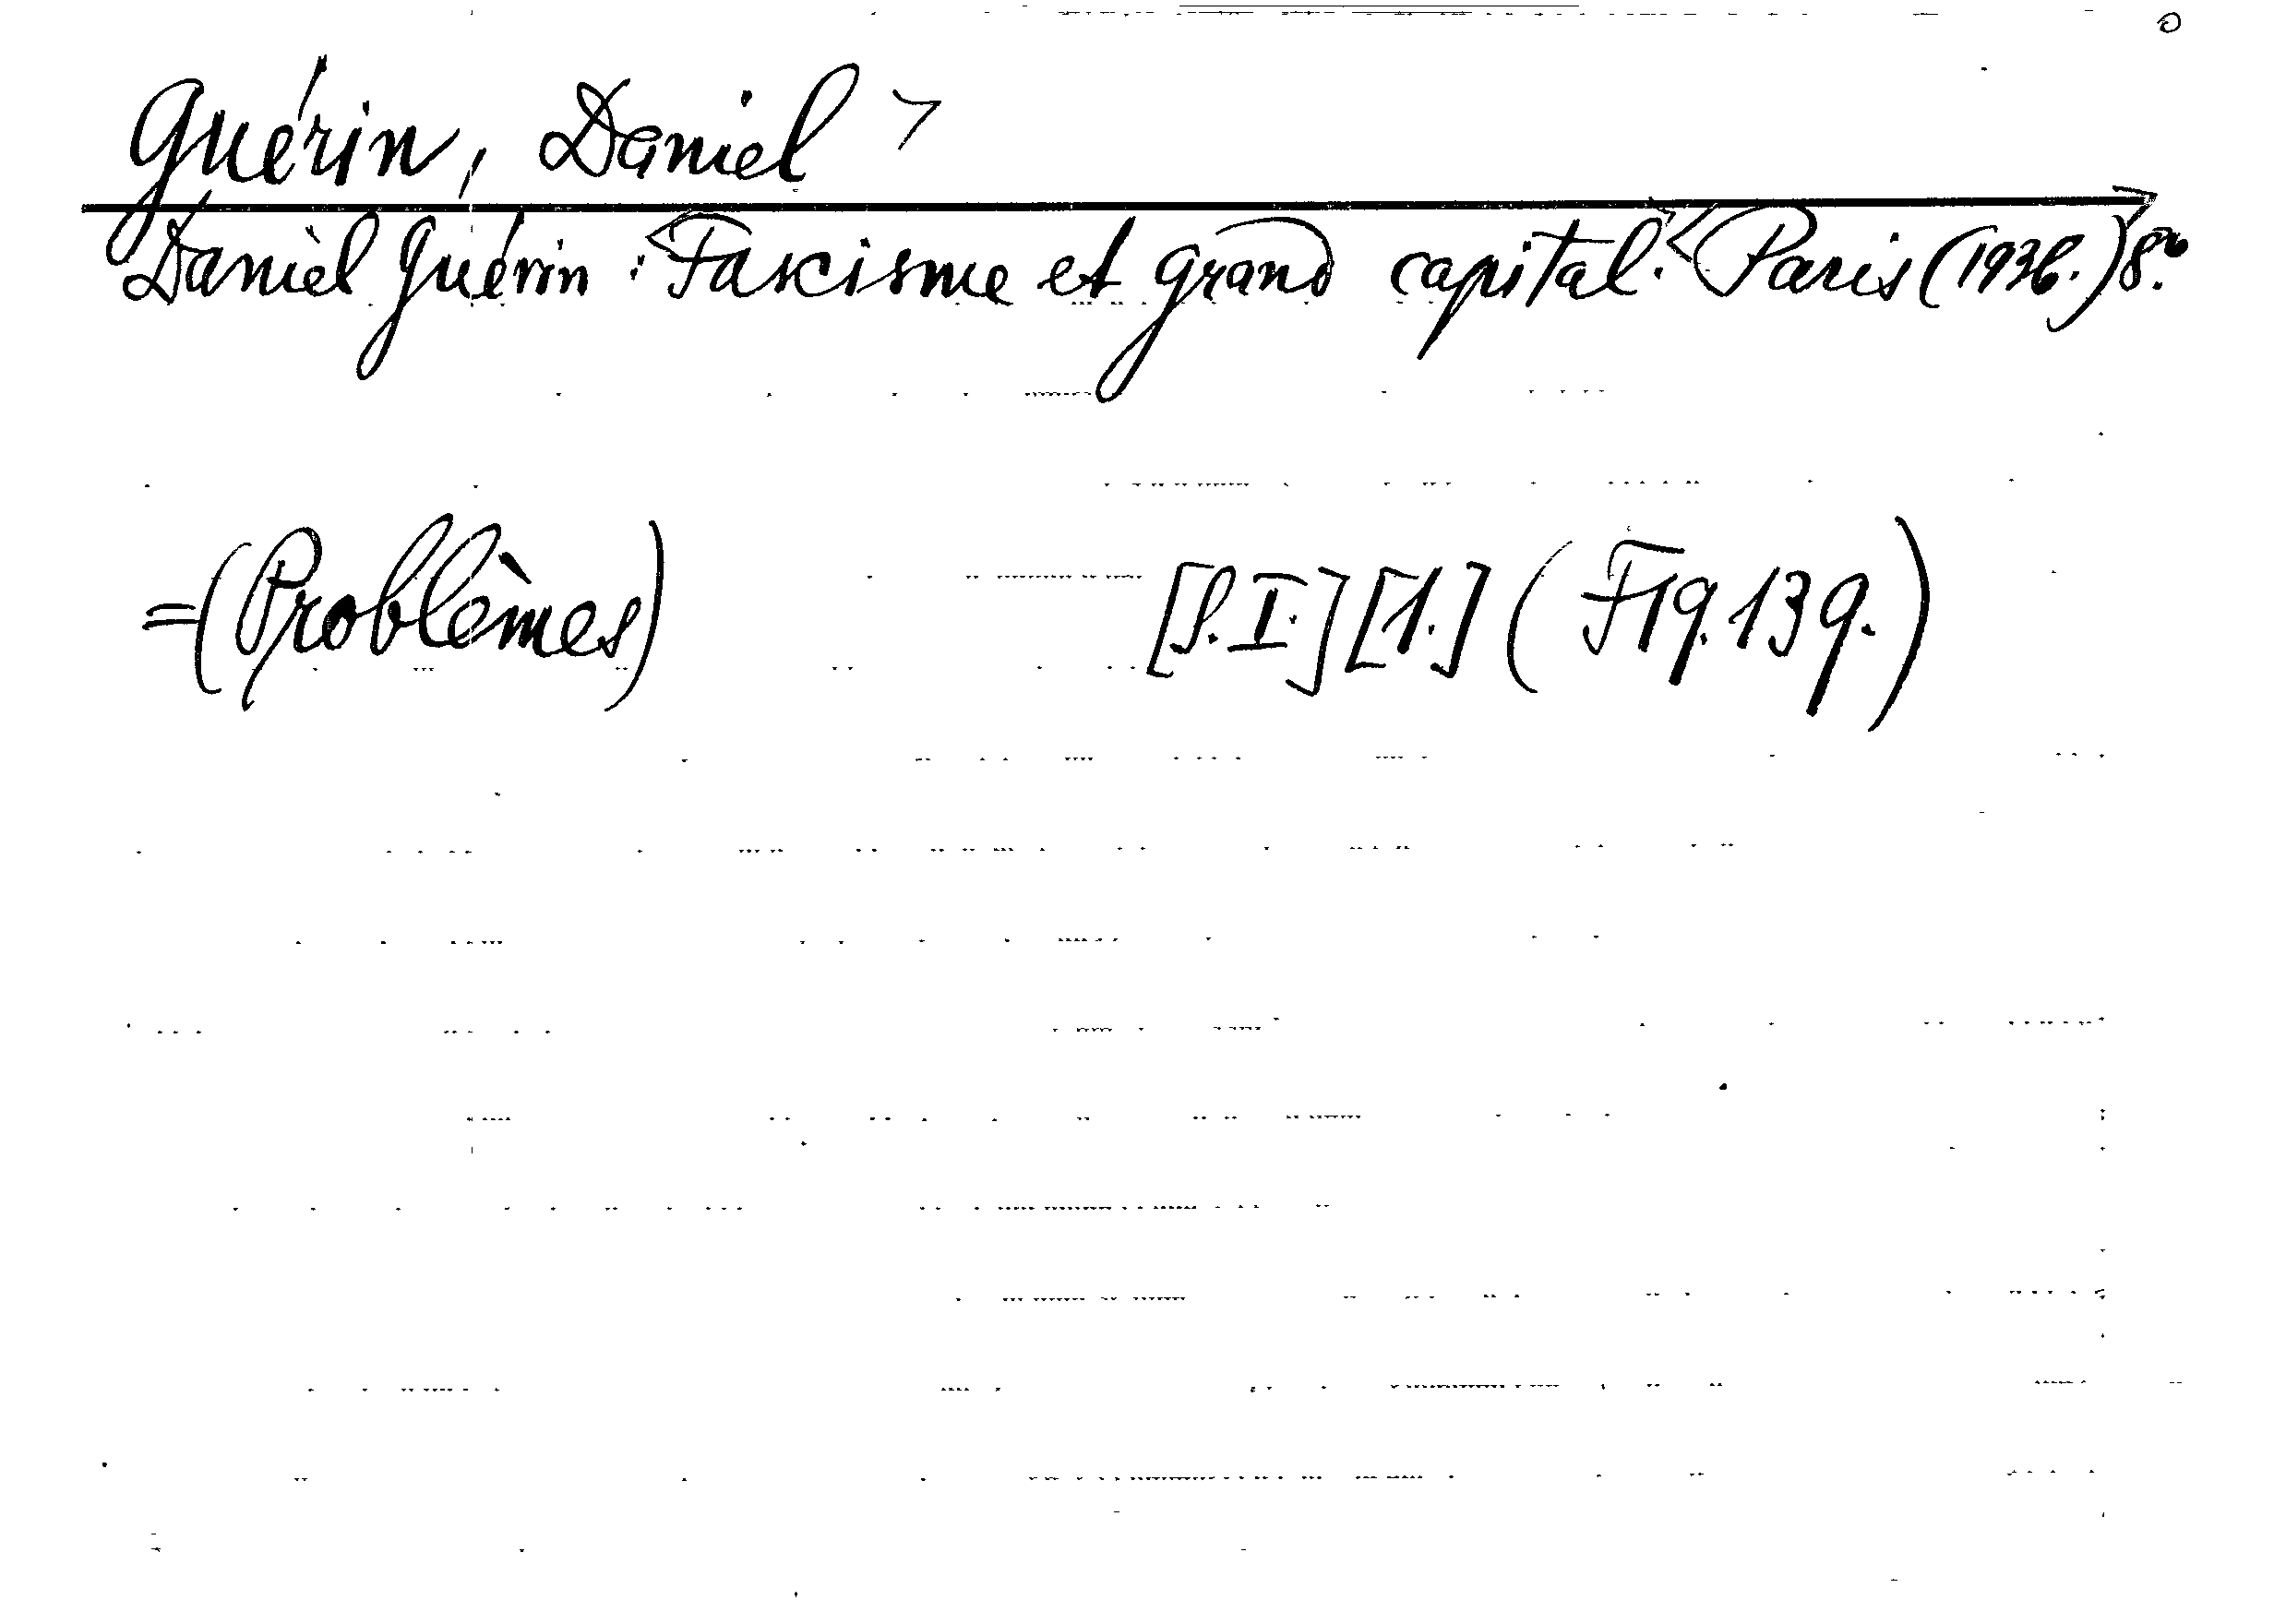 Guérin, Daniel >
Daniel Guérin: <Fascisme et grand capital.> <Paris (1936.)> 8.°
=(Problèmes) [S.I.][1.] (F19.139.)